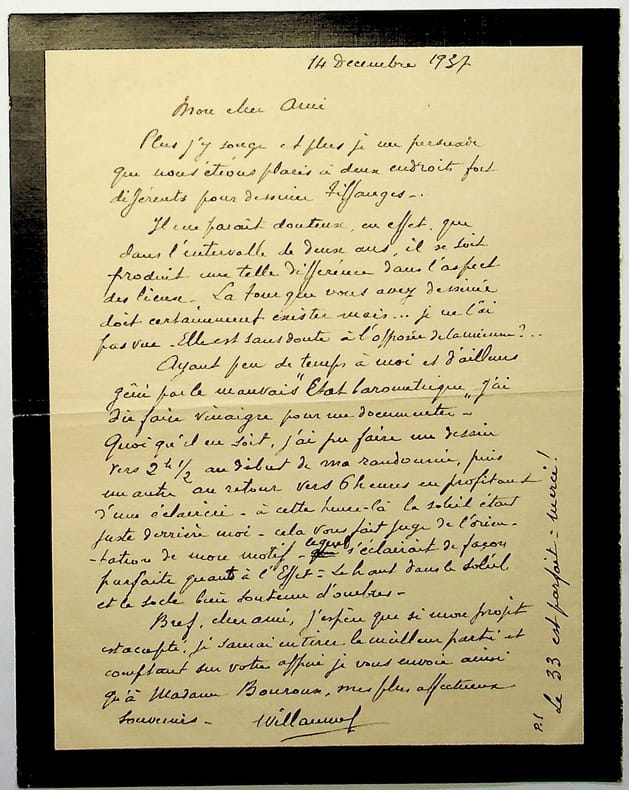 14 decembre 1937
Mon cher Ami
Plus j'y songe et plus je me persuade
que nous étions placés à deux endroits fort
différents pour dessiner Tiffauges -.
Il me parait douteux, en effet, que
dans l'intervalle de deux ans, il se soit
produit une telle différence dans l'aspect
des lieux - La tour que vous avez dessinée
doit certainement exister mais... je ne l'ai
pas vue - Elle est sans doute à l'opposé de la mienne?..
Ayant peu de temps à moi et d'ailleurs
gêné par le mauvais "Etat barometrique" j'ai
dû faire vinaigre pour me documenter -
Quoi qu'il en soit, j'ai pu faire un dessin
vers 2h 1/2 au début de ma randonnée, puis
un autre au retour vers 6 heures en profitant
d'une éclaircie - à cette heure-là le soleil était
juste derrière moi - cela vous fait juge de l'orien-
-tation de mon motif - lequel s'éclairait de façon
parfaite quant à l'Effet = Le haut dans le soleil
et le socle bien soutenu d'ombres -
Bref, cher ami, j'espère que si mon projet
est accepté, je saurai en tirer le meilleur parti et
comptant sur votre appui je vous envoie ainsi
qu'à Madame Bouroux, mes plus affectueux
souvenirs -
P.S Le 33 est parfait = merci!